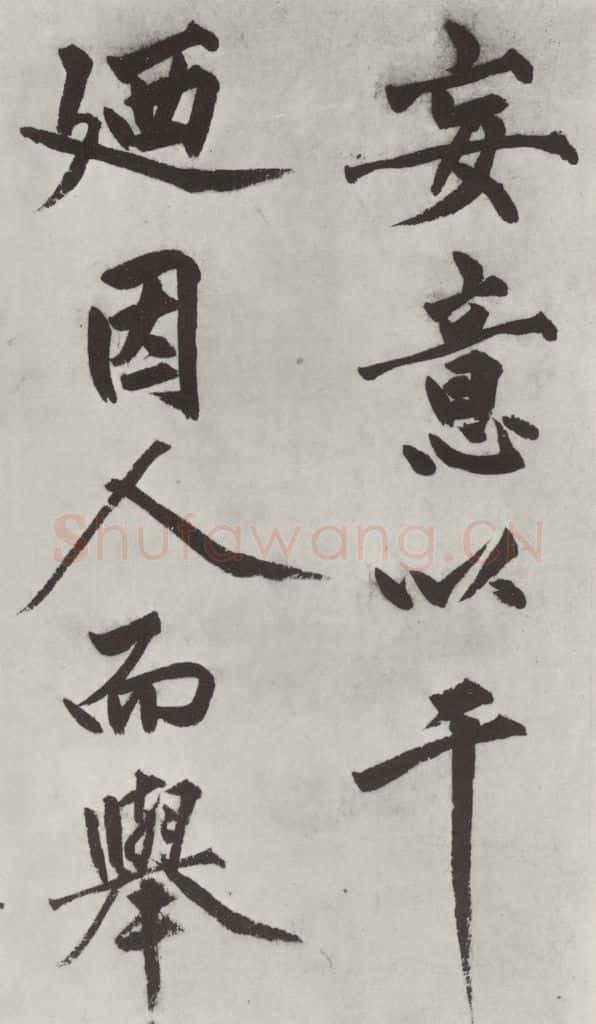 妄意以干
廼因人而舉
Shufawang.CN